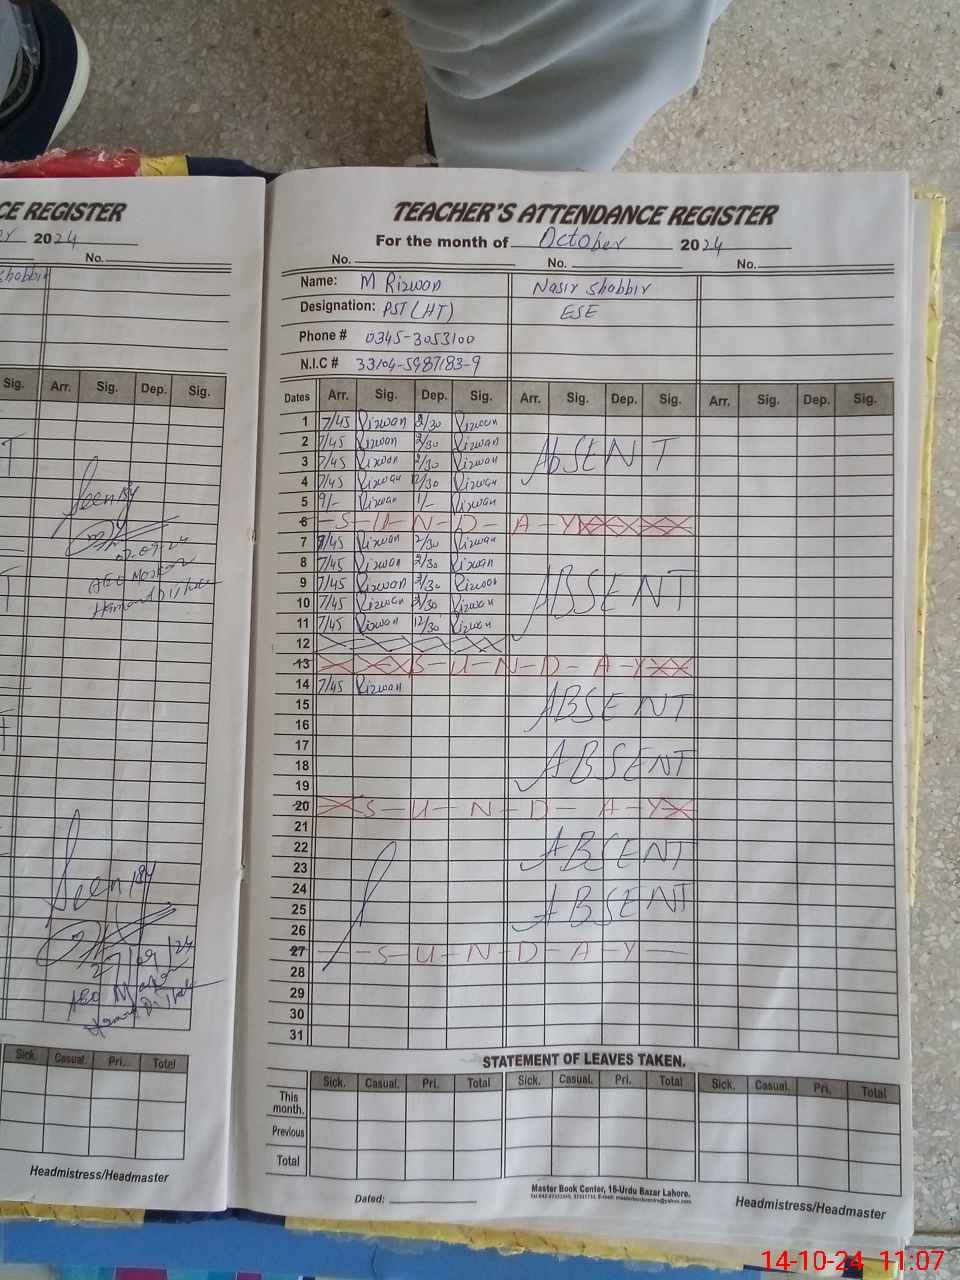 CE REGISTER
2024
No.
Shabbir
Sig. Arr. Sig. Dep. Sig.
Seen by
07-09-24
AEO
Seen by
27/09/24
AEO
Sick. Casual. Pri.. Total
Headmistress/Headmaster
TEACHER'S ATTENDANCE REGISTER
For the month of October 2024
No. No. No.
Name: M Rizwan Nasir Shabbir
Designation: PST (HT) ESE
Phone # 0345-3053100
N.I.C # 33104-5987183-9
Dates Arr. Sig. Dep. Sig. Arr. Sig. Dep. Sig. Arr. Sig. Dep. Sig.
1 7/45 Rizwan 2/30 Rizwan
2 7/45 Rizwan 2/30 Rizwan
3 7/45 Rizwan 2/30 Rizwan ABSENT
4 7/45 Rizwan 12/30 Rizwan
5 9/- Rizwan 1/- Rizwan
6 SUNDAY
7 7/45 Rizwan 2/30 Rizwan
8 7/45 Rizwan 2/30 Rizwan
9 7/45 Rizwan 2/30 Rizwan ABSENT
10 7/45 Rizwan 2/30 Rizwan
11 7/45 Rizwan 12/30 Rizwan
12
13 SUNDAY
14 7/45 Rizwan
15 ABSENT
16
17
18 ABSENT
19
20 SUNDAY
21
22 ABSENT
23
24
25 ABSENT
26
27 SUNDAY
28
29
30
31
STATEMENT OF LEAVES TAKEN.
Sick. Casual. Pri. Total Sick. Casual. Pri. Total Sick. Casual. Pri. Total
This month.
Previous
Total
Dated:
Master Book Center, 16-Urdu Bazar Lahore.
Headmistress/Headmaster
14-10-24 11:07